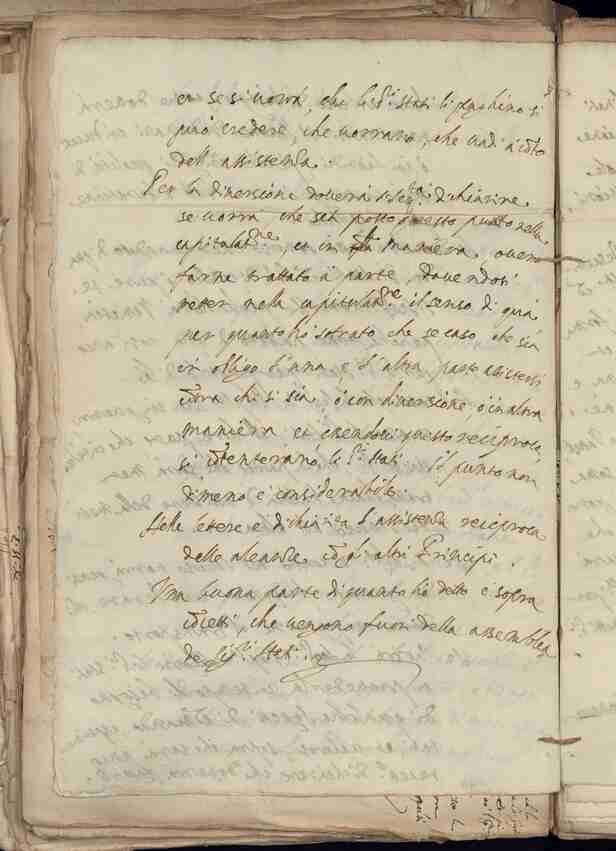 et se si vorrà, che li dti stati li paghino si
può credere, che vorrano, che vadi à cōto
dell' assistenza.
Per la diversione doverà dichiarire
se vorrà che sij posto questo punto nella
capitulatne, et in maniera overo
farne trattato à parte, dovendosi
nella capitulatne il senso di quà
per quanto hò che se caso che sia
in obligo l'una, e l'altra parte assistersi
cōtra chi si sia, ò con diversione ò in altra
maniera et essendovi questo reciproco
si cōtenterano li Sri Stati. Il punto non
dimeno è considerabile.
letere è dichiarita l'assistenza reciproca
delle aleanze cō gl' altri Principi.
Una buona parte di quanto hò detto è sopra
che vengono fuori della assemblea
de Sri Stati.